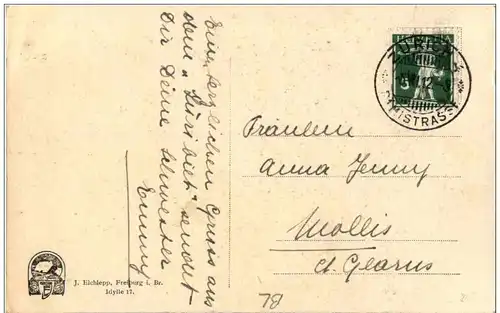 Einen herzlichen Gruss aus
dem "Züribiet" sendet
Dir Deine Schwester
Emmy
Fräulein
Anna Jenny
Mollis
ct. Glarus
ZÜRICH
12
5
J. Elchlepp, Freiburg i. Br.
Idylle 17.
78